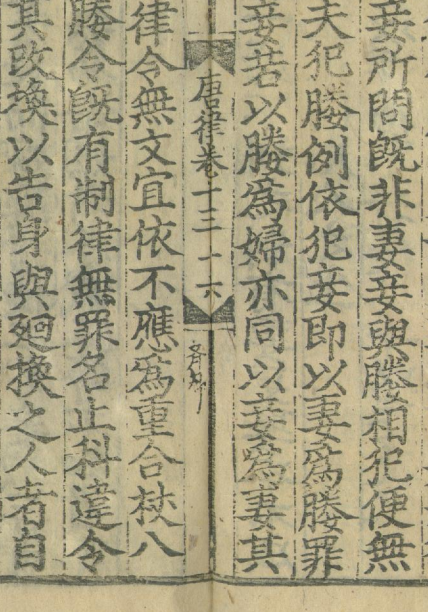 妾所問旣非妻妾與媵相犯便無
夫犯媵例依犯妾即以妻爲媵罪
妾若以媵爲婦亦同以妾爲妻其
唐律卷十三 十六
律令無文宜依不應爲重合杖八
媵令旣有制律無罪名止科違令
其改換以告身與廻換之人者自